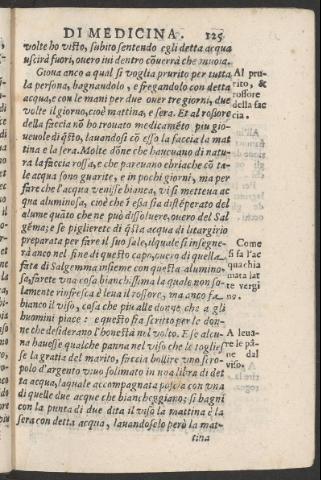 DI MEDICINA. 125
volte ho visto, subito sentendo egli detta acqua
uscirà fuori, ouero iui dentro cōuerrà che muoia.
Gioua anco a qual si voglia prurito per tutta
la persona, bagnandolo, e fregandolo con detta
acqua, e con le mani per due ouer tre giorni, due
volte il giorno, cioè mattina, e sera. Et al rossore
della faccia nō ho trouato medicamēto piu gio-
ueuole di q̄sto, lauandosi cō esso la faccia la mat
tina e la sera. Molte dōne che haucuano di natu-
ra la faccia rossa, e che pareuano ebriache cō ta-
le acqua sono guarite, e in pochi giorni, ma per
fare che l'acqua venisse bianca, vi si metteua ac
qua aluminosa, cioè che ī essa sia distēperato del
alume quāto che ne può dissoluere, ouero del Sal
gēma; e se piglierete di q̄sta acqua di litargirio
preparata per fare il suo sale, il quale si insegne-
rà anco nel fine di questo capo, ouero di quella
fata di Salgemma insieme con questa alumino-
sa, farete vna cosa bianchissima la quale non so-
lamente rinfresca è leua il rossore, ma anco fa
bianco il viso, cosa che piu alle donne che a gli
huomini piace: e questo sia scritto per le don-
ne che desiderano l'honestà nel volto. E se alcu-
na hauesse qualche panna nel viso che le toglies
se la gratia del marito, faccia bollire vno scro-
polo d'argento viuo solimato in una libra di det
ta acqua, laquale accompagnata poscia con vna
di quelle due acque che biancheggiano; si bagni
con la punta di due dita il viso la mattina è la
sera con detta acqua, lauandoselo però la mat-
tina
Al pru-
rito, &
rossore
della fac
cia.
Come
si fa l'ac
qua chia
mata lat
te vergi
no.
A leua-
re le pā-
ne dal
viso.